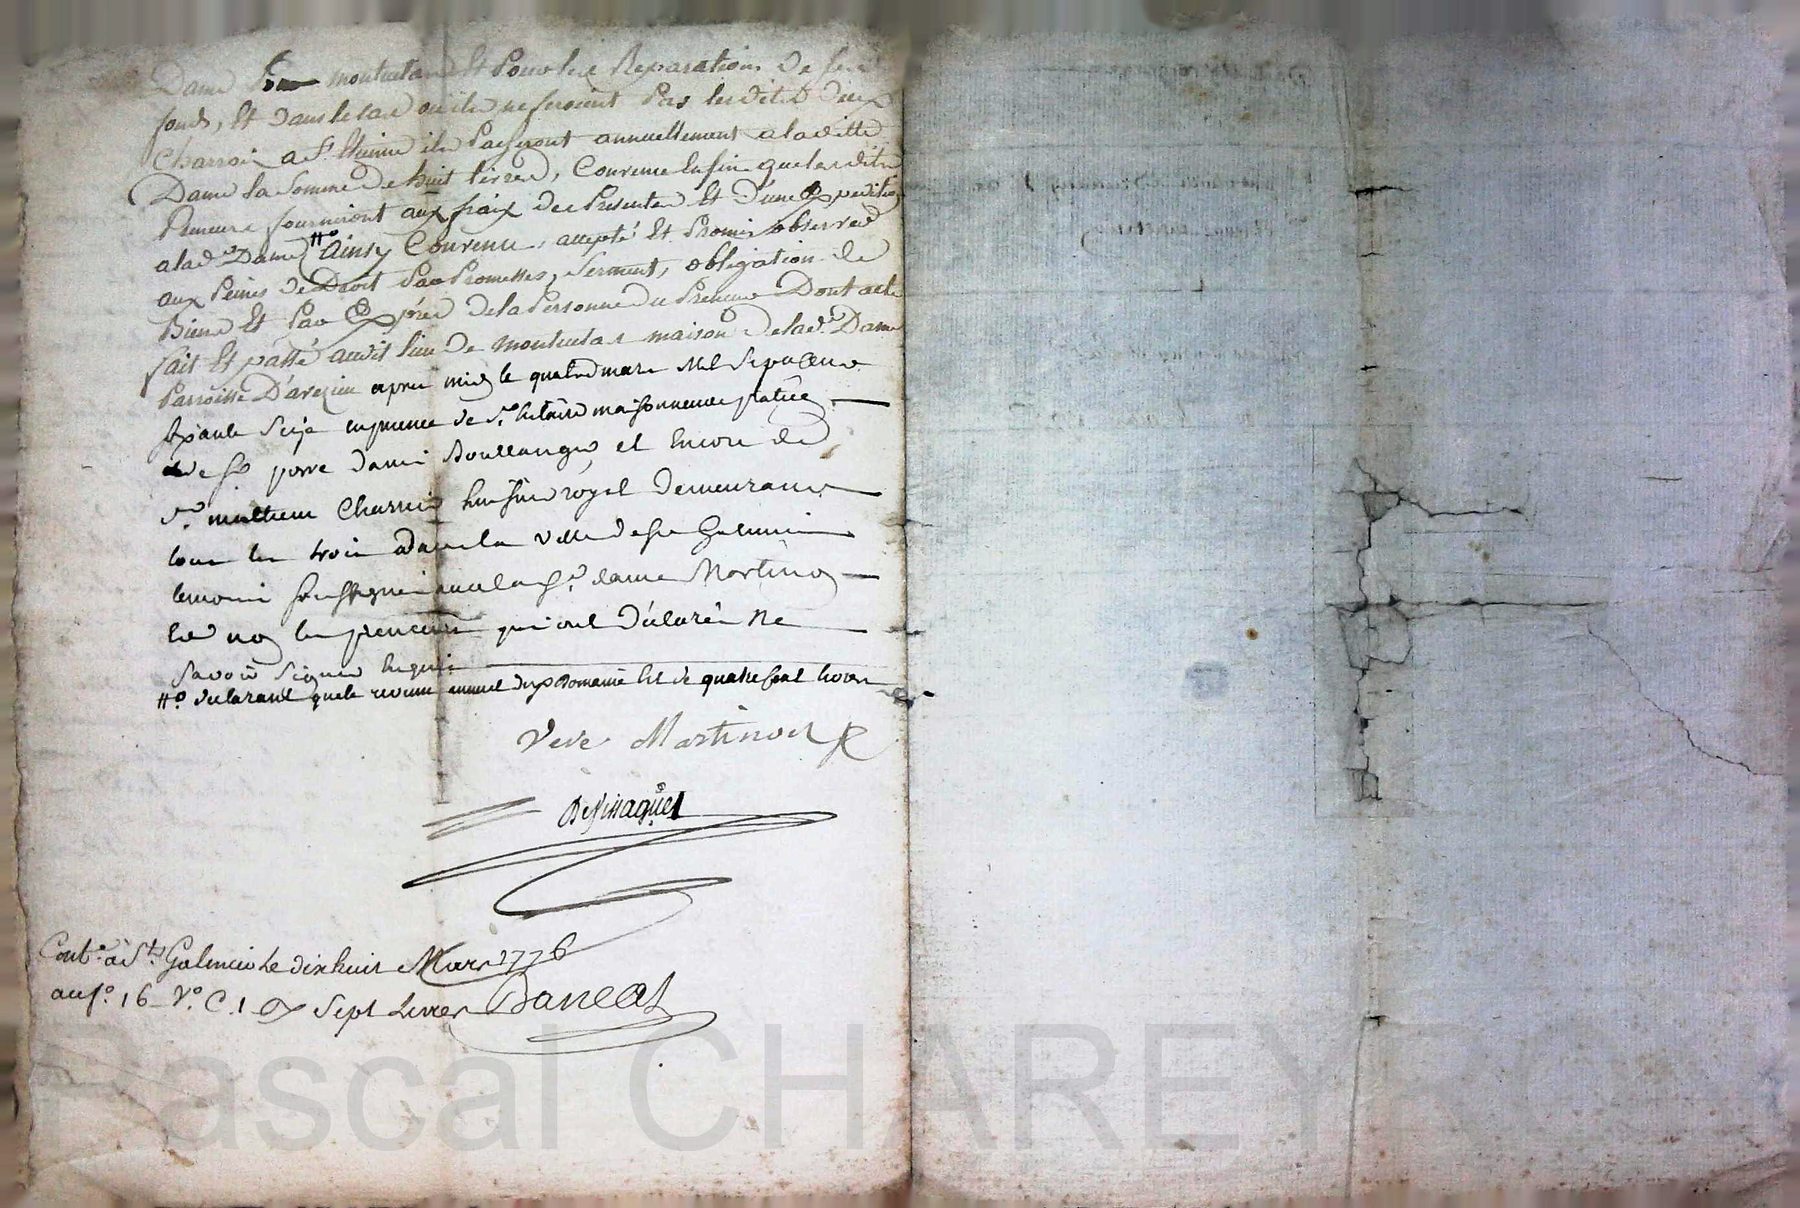 Dame montuclas Et Pour les Reparations de ses
fonds, Et dans le cas ou ils ne feroient Pas lesdits deux
Charrois a St. Etienne ils Payeront annuellement a laditte
Dame la somme de huit livres, Convenu Enfin que lesdits
Preneurs fourniront aux fraix des Presentes Et d'une Expedition
a lad.e Dame #o Ainsy Convenu, accepté Et Promis observer
aux Peines de Droit Par Promesses, serment, obligation de
Biens Et Par Exprés de la Personne des Preneurs Dont acte
fait Et passé audit lieu de montuclas maison de lad.e Dame
Parroisse D'aveizieu apres midy le quatre mars Mil Sept Cent
soixante Seize en presence de Sr. maisonneuve
de Sr. pierre Boullanger, et Encore de
Sr. mathieu huissier royal Demeurant
tous les trois dans la ville de St Galmier
temoins soussignés avec la de. dame Martinod
et non les preneurs qui ont déclaré ne
Savoir Signer
#o declarant que le revenu annuel du Domaine Est de quatre cent livres
Veve Martinod
Contlé. à St. Galmier Le dix huit Mars 1776
au fo. 16 Vo. C. 1 Sept Livres
Pascal CHAREYRON